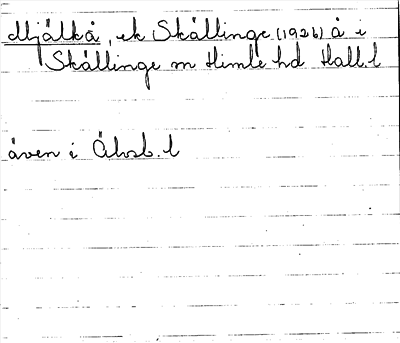 Mjälkå, ek Skällinge (1926) å i
Skällinge sn Himle hd Hall. l
även i Älvsb. l